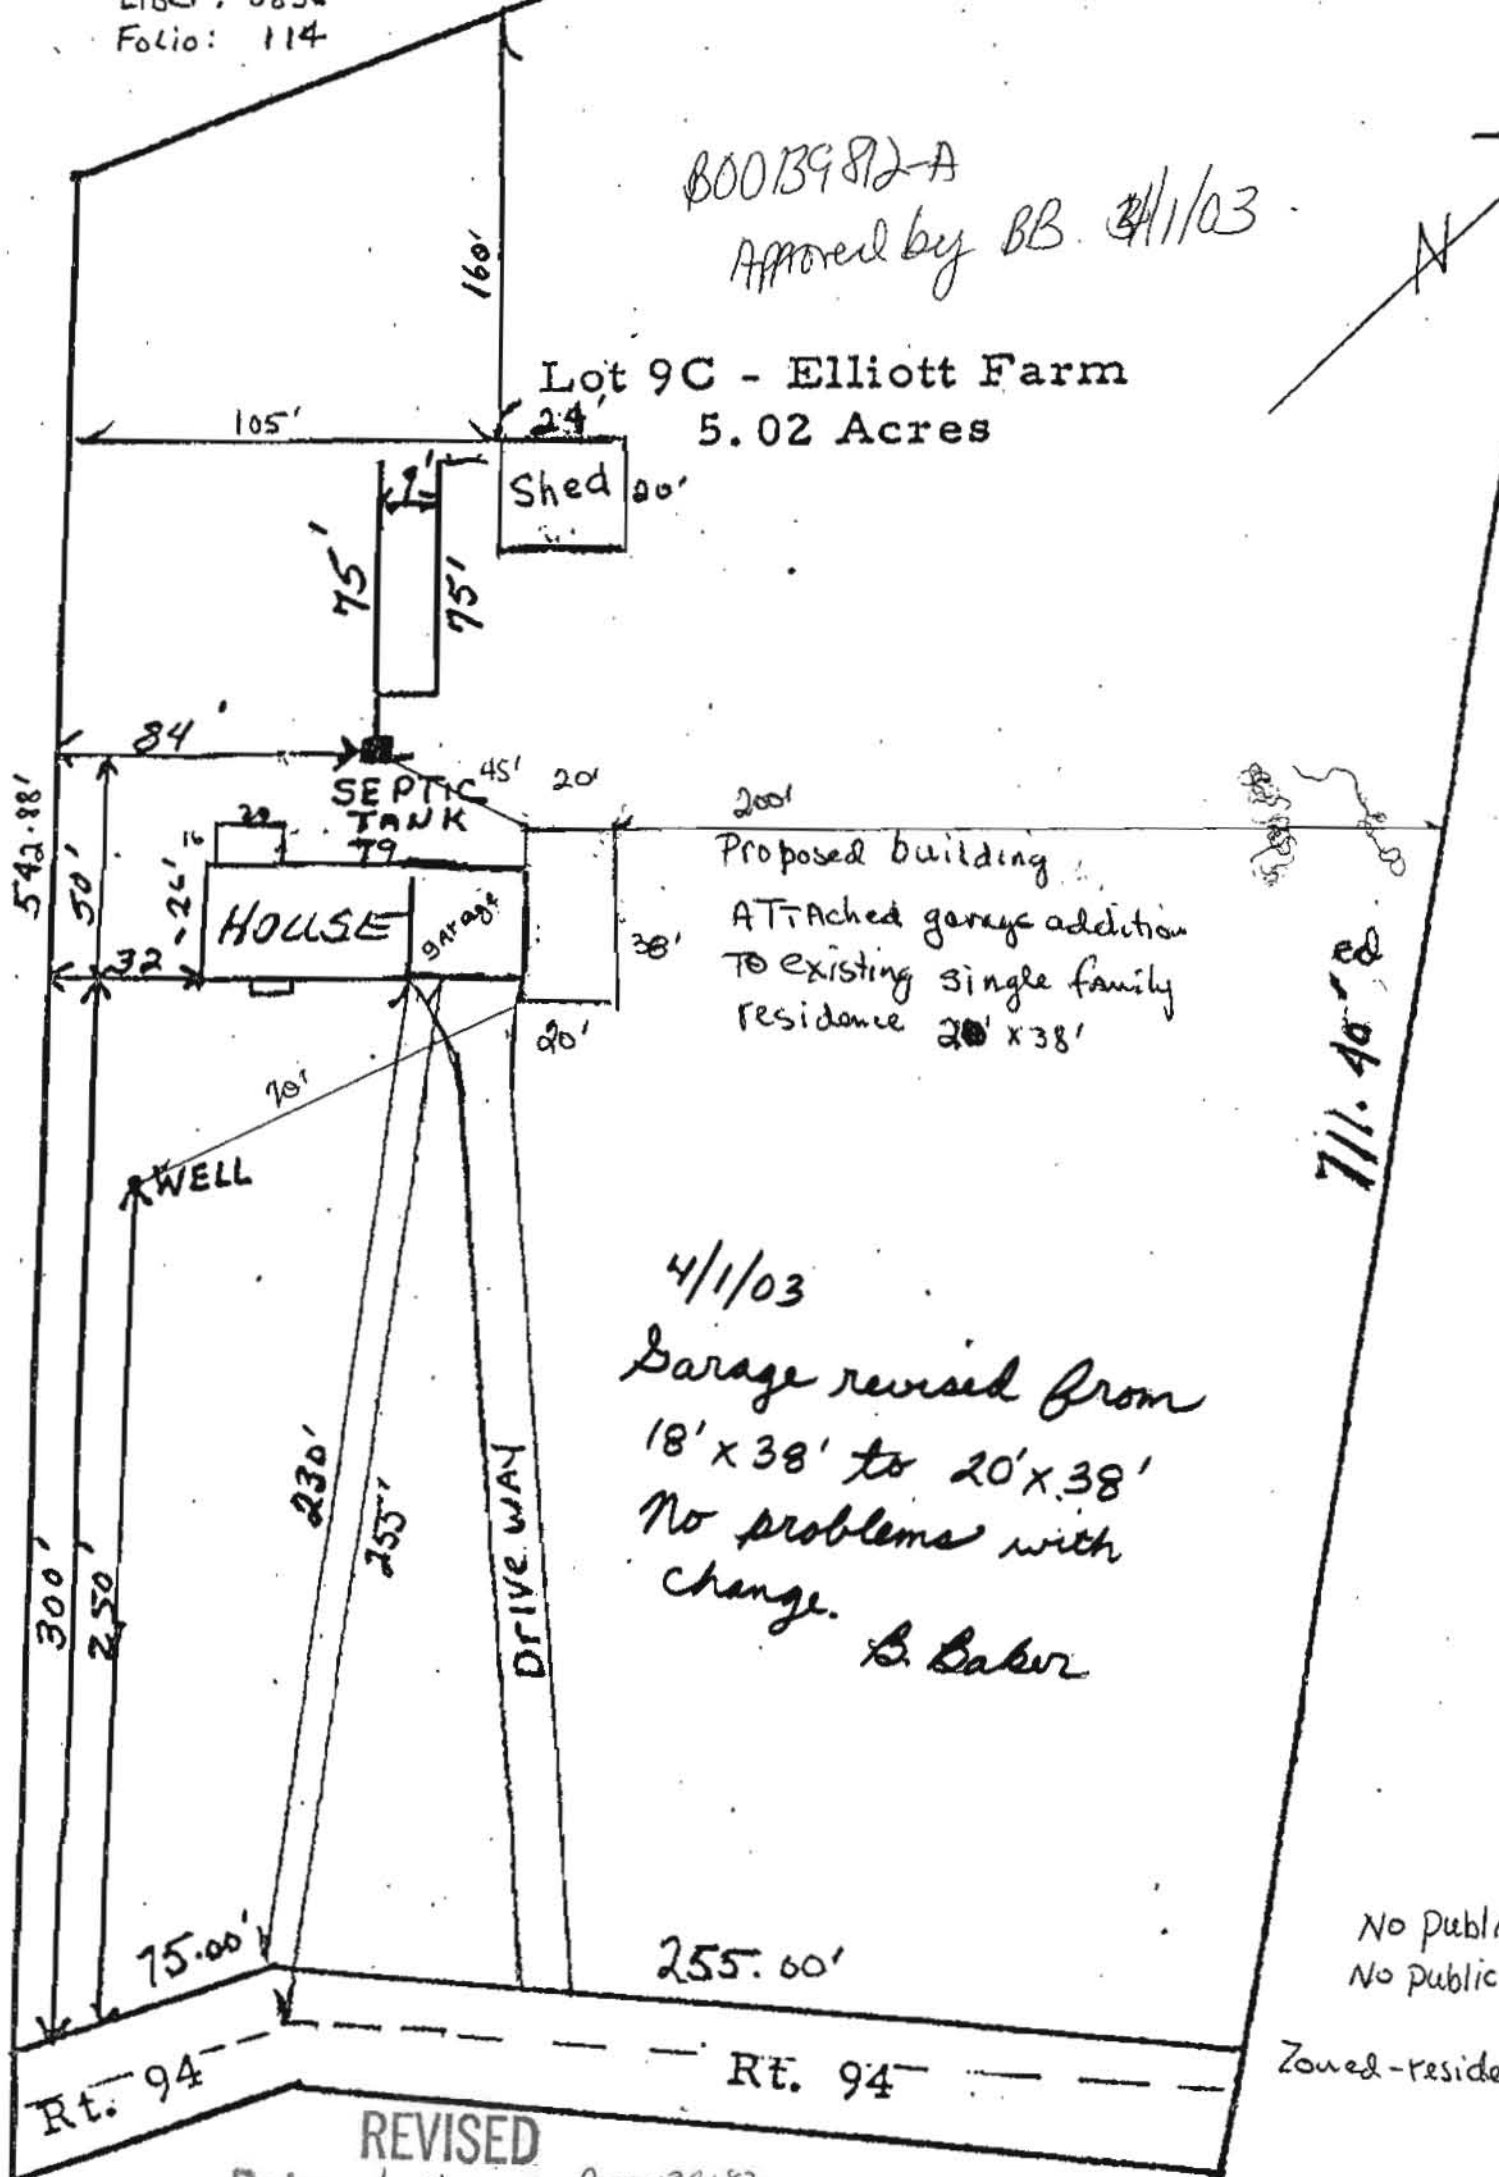 Folio: 114
B00139812-A
Approved by BB. 4/1/03
N
160'
Lot 9C - Elliott Farm
5.02 Acres
105'
24'
Shed
20'
9'
75'
75'
84'
SEPTIC
TANK
45'
20'
200'
542.88'
50'
16
20
79
26'
HOUSE
garage
32
38'
20'
Proposed building
ATTAched garage addition
To existing single family
residence 20' x 38'
70'
WELL
711.40'
ed
4/1/03
Garage revised from
18' x 38' to 20' x 38'
No problems with
change.
B. Baker
230'
255'
Drive way
300'
250'
75.00'
255.00'
No Publi
No Public
Zoned-reside
Rt. 94
Rt. 94
REVISED